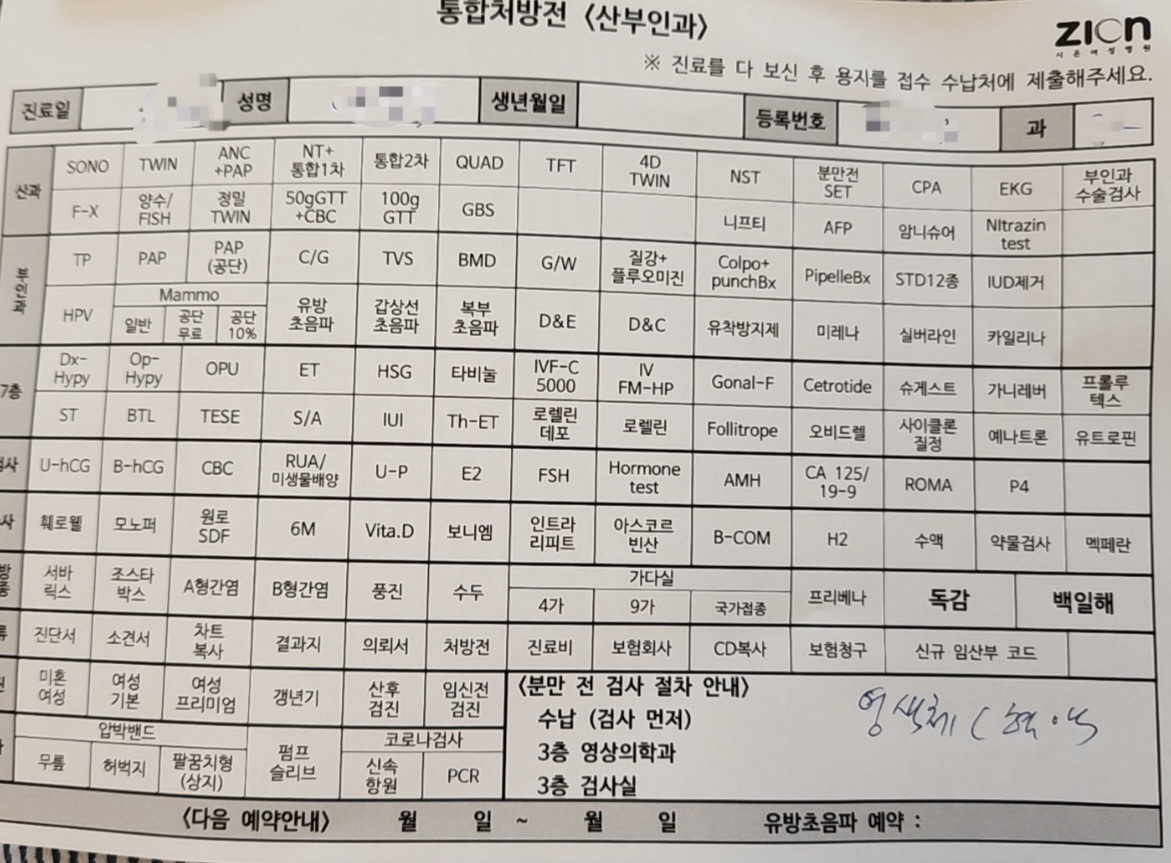 통합처방전 〈산부인과〉
ZION
시온여성병원
※ 진료를 다 보신 후 용지를 접수 수납처에 제출해주세요.
진료일 성명 생년월일 등록번호 과
산과 SONO TWIN ANC+PAP NT+통합1차 통합2차 QUAD TFT 4D TWIN NST 분만전 SET CPA EKG 부인과 수술검사
F-X 양수/FISH 정밀 TWIN 50gGTT+CBC 100g GTT GBS 니프티 AFP 암니슈어 NItrazin test
부인과 TP PAP PAP(공단) C/G TVS BMD G/W 질강+플루오미진 Colpo+punchBx PipelleBx STD12종 IUD제거
HPV Mammo 일반 공단무료 공단10% 유방초음파 갑상선초음파 복부초음파 D&E D&C 유착방지제 미레나 실버라인 카일리나
7층 Dx-Hypy Op-Hypy OPU ET HSG 타비눌 IVF-C 5000 IV FM-HP Gonal-F Cetrotide 슈게스트 가니레버 프롤루텍스
ST BTL TESE S/A IUI Th-ET 로렐린데포 로렐린 Follitrope 오비드렐 사이클론질정 예나트론 유트로핀
사 U-hCG B-hCG CBC RUA/미생물배양 U-P E2 FSH Hormone test AMH CA 125/19-9 ROMA P4
사 훼로웰 모노퍼 원로 SDF 6M Vita.D 보니엠 인트라리피트 아스코르빈산 B-COM H2 수액 약물검사 멕페란
서바릭스 조스타박스 A형간염 B형간염 풍진 수두 가다실 4가 9가 국가접종 프리베나 독감 백일해
진단서 소견서 차트복사 결과지 의뢰서 처방전 진료비 보험회사 CD복사 보험청구 신규 임산부 코드
미혼여성 여성기본 여성프리미엄 갱년기 산후검진 임신전검진
압박밴드 무릎 허벅지 팔꿈치형(상지) 펌프슬리브 코로나검사 신속항원 PCR
〈분만 전 검사 절차 안내〉
수납 (검사 먼저)
3층 영상의학과
3층 검사실
염색체 (
〈다음 예약안내〉 월 일 ~ 월 일 유방초음파 예약 :